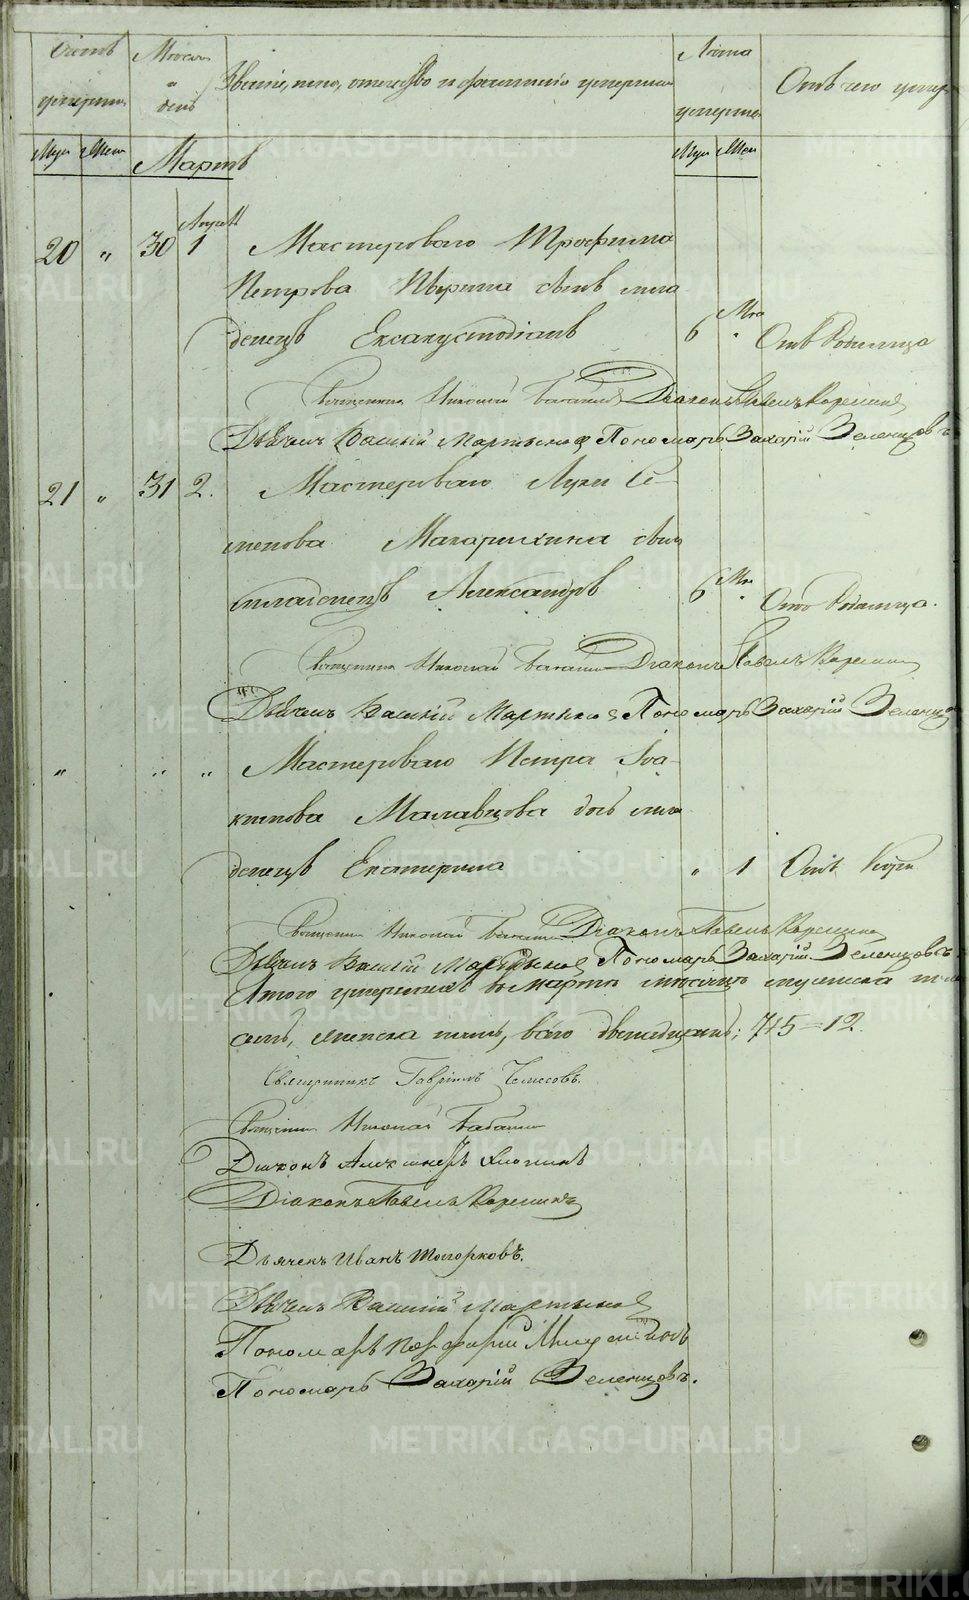 Счетъ умершихъ
Мѣсяцъ и день
Званіе, имя, отечество и фамилія умершихъ
Лѣта умершаго
Отъ чего умеръ
Муж Жен
Мартъ
Муж Жен
Апрѣль
20 „ 30 1 Мастероваго Трофима
Петрова сынъ мла
денецъ Евсакустодіанъ 6 Мѣс „ Отъ Родимца
Священникъ Николай Діаконъ Павелъ
Дьячекъ Василій Мартыновъ Пономарь Захарій Зеленцовъ
21 „ 31 2. Мастероваго Луки Се
менова Макарихина сынъ
младенецъ Александръ 6 Мѣс „ Отъ Родимца.
Священникъ Николай Діаконъ Павелъ
Дьячекъ Василій Мартыновъ Пономарь Захарій Зеленцовъ
„ „ „ Мастероваго Петра Іоа
кимова дочь мла
денецъ Екатерина „ 1 Отъ Кори
Священникъ Николай Діаконъ Павелъ
Дьячекъ Василій Мартыновъ Пономарь Захарій Зеленцовъ
Итого умершихъ въ мартѣ мѣсяцѣ мужеска
семь, женска пять, всего двенадцать; 7+5=12.
Священникъ Гавріилъ
Священникъ Николай
Діаконъ
Діаконъ Павелъ
Дьячекъ Иванъ Топорковъ.
Дьячекъ Василій Мартыновъ
Пономарь Порфирій
Пономарь Захарій Зеленцовъ.
METRIKI.GASO-URAL.RU